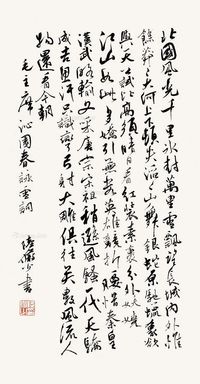 北國風光千里冰封萬里雪飄望長城內外惟
餘莽莽大河上下頓失滔滔山舞銀蛇原馳蠟象欲
與天公試比高須晴日看紅裝素裹分外妖嬈
江山如此多嬌引無數英雄競折腰惜秦皇
漢武略輸文采唐宗宋祖稍遜風騷一代天驕
成吉思汗只識彎弓射大雕俱往矣數風流人
物還看今朝
毛主席沁園春詠雪詞
書